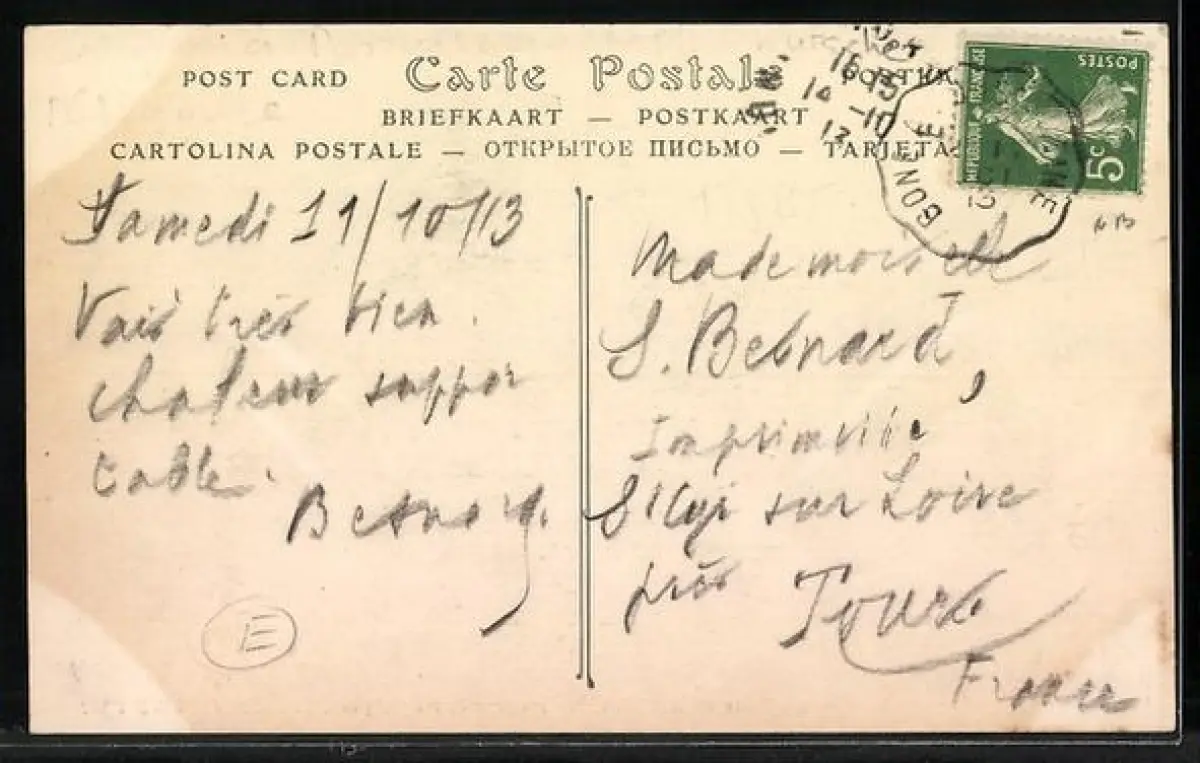 POST CARD Carte Postale
BRIEFKAART — POSTKAART
CARTOLINA POSTALE — ОТКРЫТОЕ ПИСЬМО — TARJETA
16 15
14 -10
13
BONE
POSTES
REPUBLIQUE FRANÇAISE
5c
Samedi 11/10/13
Vais très bien.
chaleur suppor
table.
Besnard.
E
Mademoiselle
S. Besnard,
Imprimerie
St Cyr sur Loire
près Tours
France